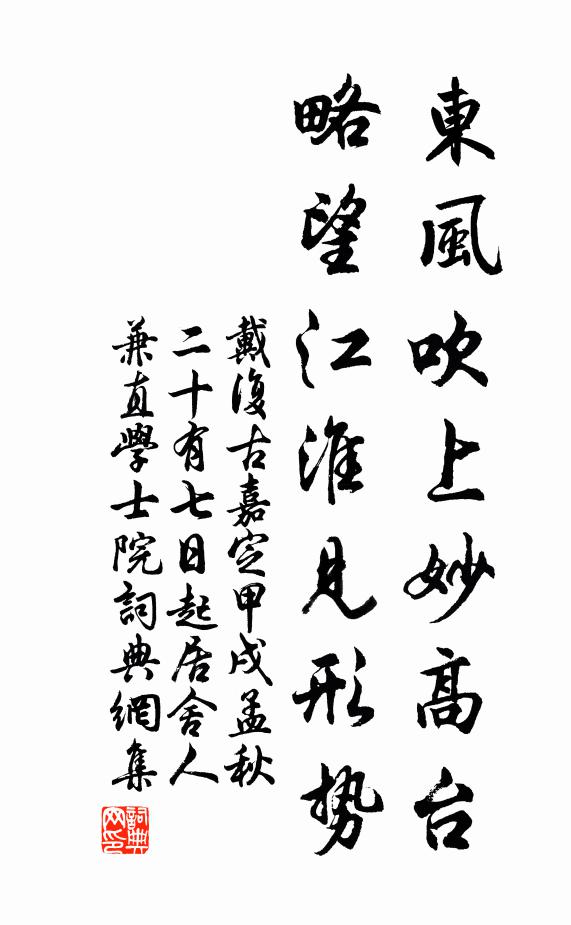 東風吹上妙高台
略望江淮見形势
戴復古嘉定甲戌孟秋
二十有七日起居舍人
兼直學士院詞典網集
詞典
网印